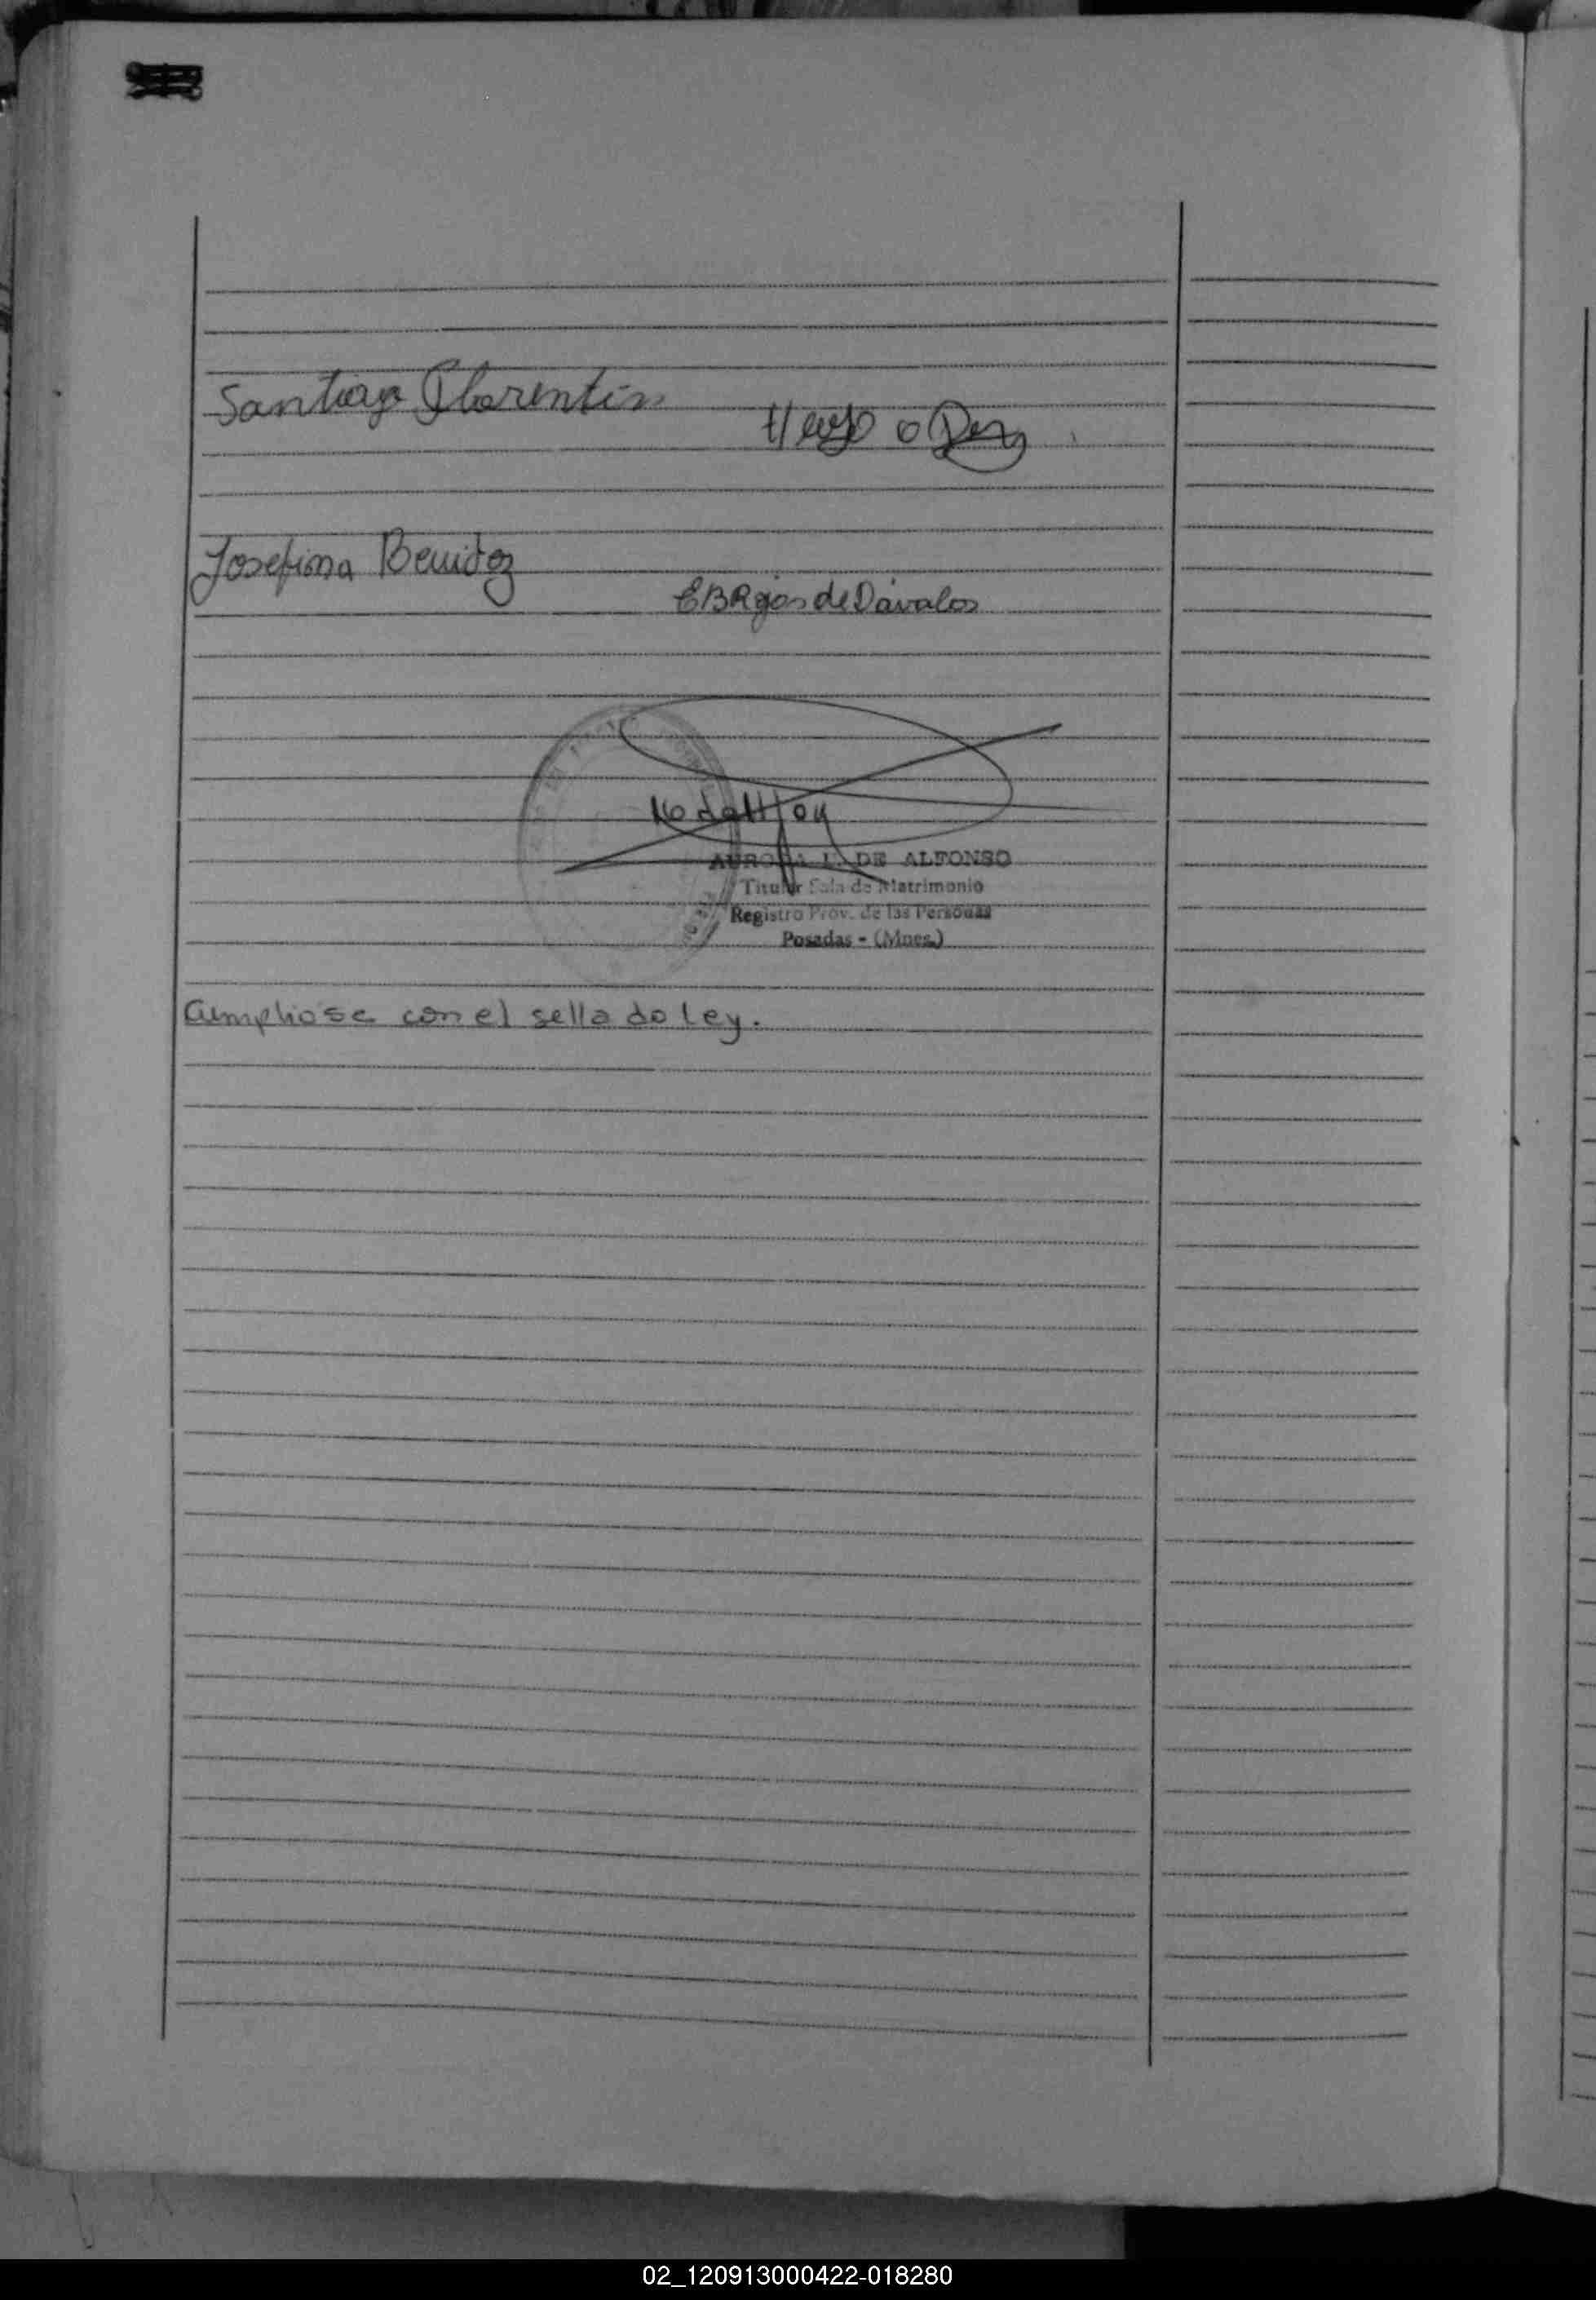 Santiago Florentín
Josefina Benitez
EBRojas de Dávalos
AURORA L. DE ALFONSO
Titular Sala de Matrimonio
Registro Prov. de las Personas
Posadas - (Mnes.)
Cumpliose con el sellado ley.
02_120913000422-018280